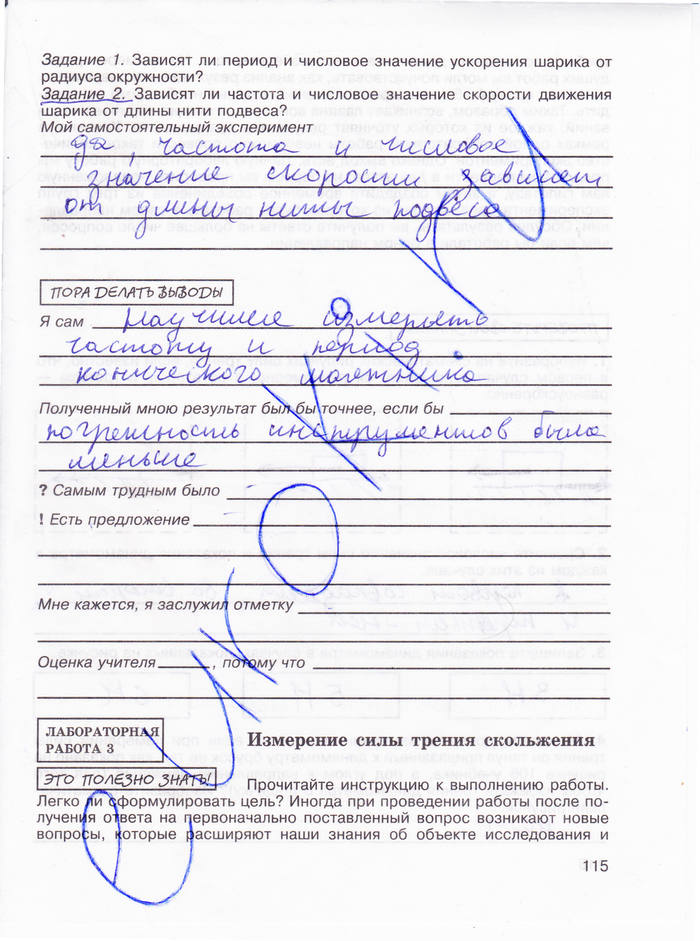 Задание 1. Зависят ли период и числовое значение ускорения шарика от
радиуса окружности?
Задание 2. Зависят ли частота и числовое значение скорости движения
шарика от длины нити подвеса?
Мой самостоятельный эксперимент
да, частота и числовое
значение скорости зависят
от длины нити подвеса
ПОРА ДЕЛАТЬ ВЫВОДЫ
Я сам научился измерять
частоту и период
конического маятника
Полученный мною результат был бы точнее, если бы
погрешность инструментов была
меньше
? Самым трудным было
! Есть предложение
Мне кажется, я заслужил отметку
Оценка учителя , потому что
ЛАБОРАТОРНАЯ
РАБОТА 3
Измерение силы трения скольжения
ЭТО ПОЛЕЗНО ЗНАТЬ!
Прочитайте инструкцию к выполнению работы.
Легко ли сформулировать цель? Иногда при проведении работы после по-
лучения ответа на первоначально поставленный вопрос возникают новые
вопросы, которые расширяют наши знания об объекте исследования и
115